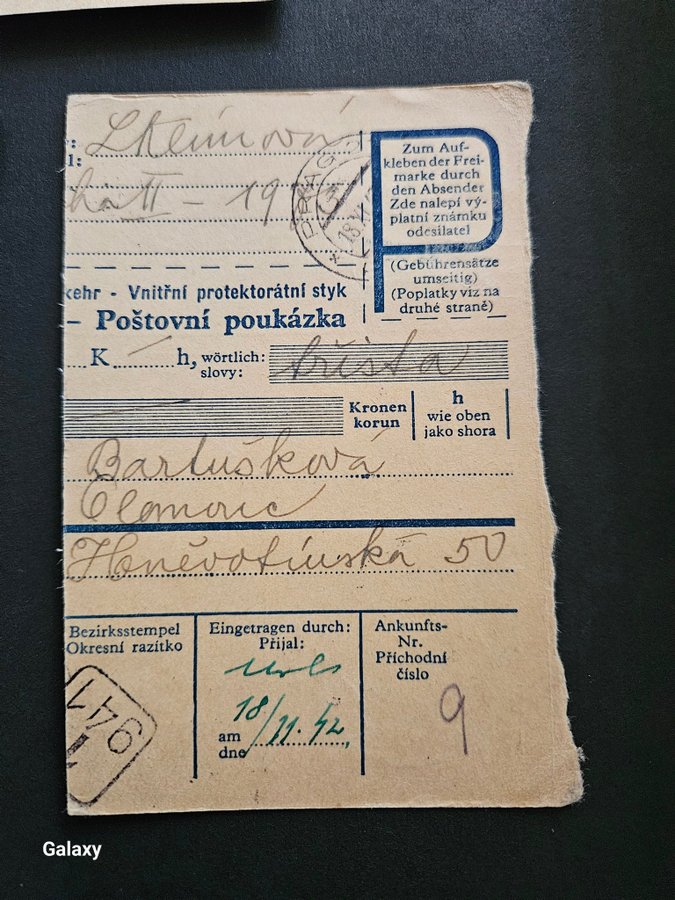 l:
Zum Auf-
kleben der Frei-
marke durch
den Absender
Zde nalepí vý-
platní známku
odesílatel
II – 19
PRAG
18.XI
(Gebührensätze
umseitig)
(Poplatky viz na
druhé straně)
kehr - Vnitřní protektorátní styk
– Poštovní poukázka
K h, wörtlich:
slovy:
třista
Kronen
korun
h
wie oben
jako shora
Bartušková
Olomouc
Hněvotínská 50
Bezirksstempel
Okresní razítko
Eingetragen durch:
Přijal:
am
dne
18/11.42
Ankunfts-
Nr.
Příchodní
číslo
9
941
Galaxy